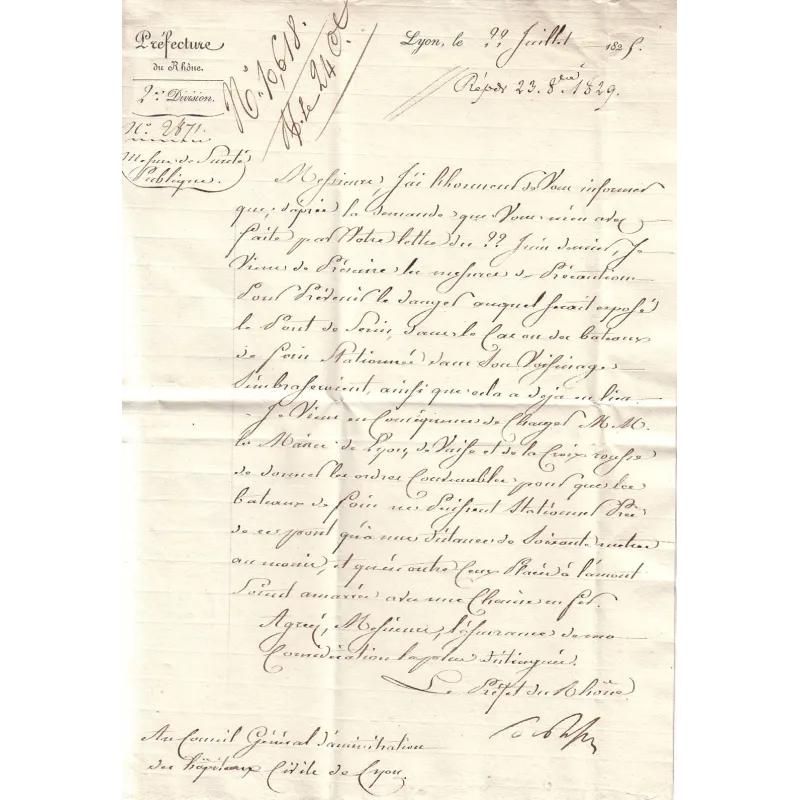 Préfecture
du Rhône.
2e. Division.
N° 2871.
Mesure de Santé
Publique.
N° 10,618.
24
Lyon, le 22 Juillet 182
Rép. 23. 8bre. 1829.
Messieurs, J'ai l'honneur de Vous informer
que, d'après la demande que Vous m'en avez
faite par Votre lettre du 22 Juin dernier, Je
Viens de Prescrire les mesures de Précaution
Pour Prévenir le danger auquel Serait exposé
le Pont de Serin, dans le Cas où des bateaux
de foin Stationnés dans Son Voisinage
S'embraseraient, ainsi que cela a déjà eu lieu.
Je Viens en Conséquence de Charger M.M.
les Maires de Lyon, de Vaise et de la Croix rousse
de donner les ordres Convenables pour que les
bateaux de foin ne Puissent Stationner Près
de ce pont qu'à une Distance de Soixante mètres
au moins, et qu'en outre Ceux Placés à l'amont
Soient amarrés avec une Chaine en fer.
Agréez, Messieurs, l'assurance de ma
Considération la plus distinguée.
Le Préfet du Rhône
Au Conseil Général d'administration
des hôpitaux Civils de Lyon.